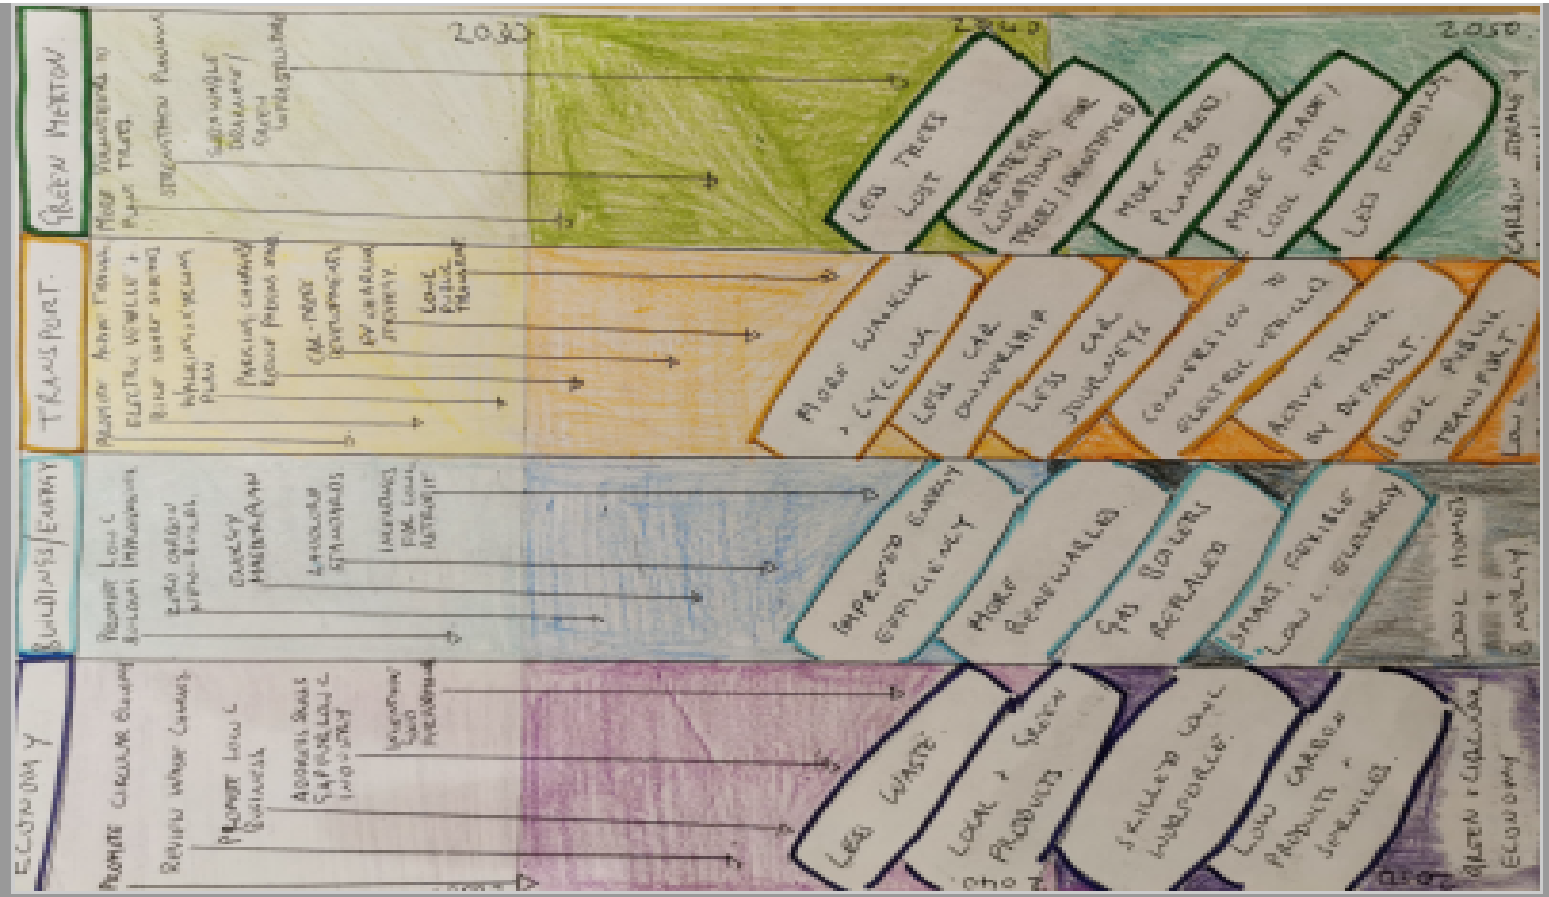 2030
2040
2050
GREEN MERTON
MORE VOLUNTEERS TO
PLANT TREES
STRENGTHEN PLANNING
SUSTAINABLE
DRAINAGE/
GREEN
INFRASTRUCTURE
LESS TREES
LOST
STRATEGIC
LOCATIONS FOR
TREES IDENTIFIED
MORE TREES
PLANTED
MORE SHADE/
COOL SPOTS
LESS FLOODING
CARBON STORAGE
TRANSPORT.
PROMOTE ACTIVE TRAVEL
ELECTRIC VEHICLE +
BIKE SHARE SCHEMES
WALKING + CYCLING
PLAN
PARKING CHARGES
CAR-FREE
DEVELOPMENTS
EV CHARGING
STRATEGY
LOW C
PUBLIC
TRANSPORT
MORE WALKING
+ CYCLING
LESS CAR
OWNERSHIP
LESS CAR
JOURNEYS
CONVERSION TO
ELECTRIC VEHICLES
ACTIVE TRAVEL
BY DEFAULT.
LOW C PUBLIC
TRANSPORT.
LOW C
BUILDINGS/ENERGY
PROMOTE LOW C
ZERO CARBON
NEW-BUILDS
ENERGY
MASTERPLAN
LANDLORD
STANDARDS
INCENTIVES
FOR LOW C
RETROFIT
IMPROVED ENERGY
EFFICIENCY
MORE
RENEWABLES.
GAS BOILERS
REPLACED
SMART, FLEXIBLE
LOW C. ELECTRICITY
LOW C HOMES
+
ENERGY
ECONOMY
PROMOTE CIRCULAR ECONOMY
REVIEW WASTE CHARGES
PROMOTE LOW C
BUSINESS
ADDRESS SKILLS
GAP FOR LOW C
INDUSTRY
LESS WASTE
LOCAL + GREEN
PRODUCTS
SKILLED LOW C
WORKFORCE.
LOW CARBON
PRODUCTS +
SERVICES.
GREEN + CIRCULAR
ECONOMY